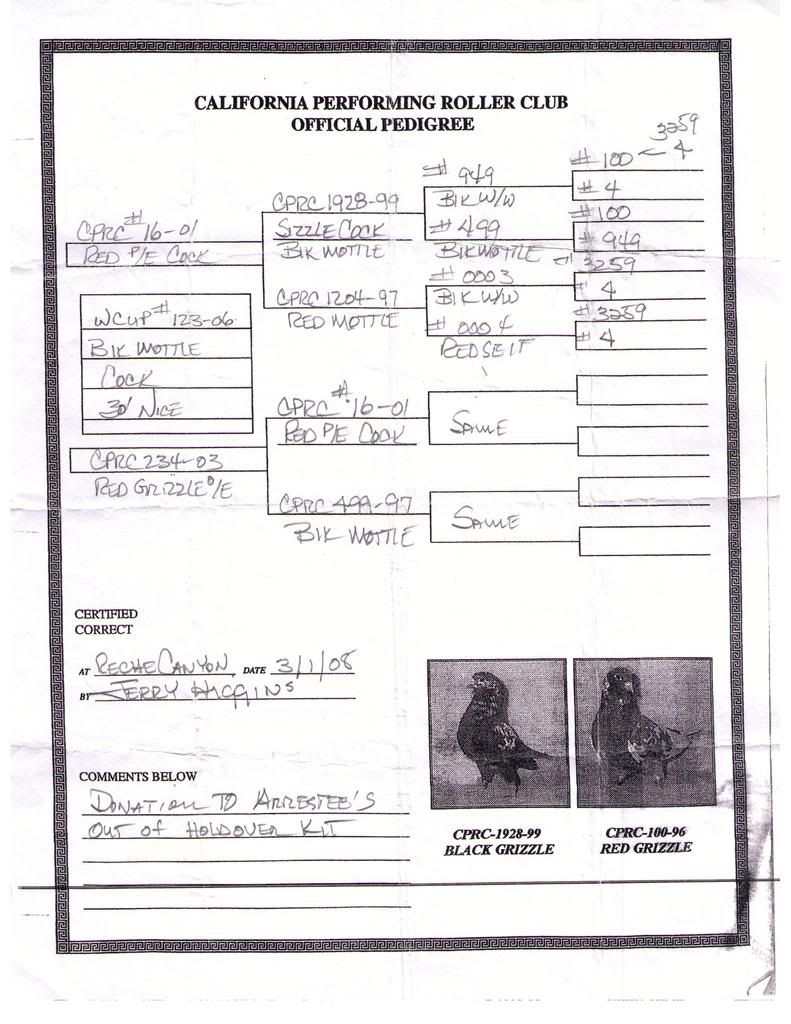 CALIFORNIA PERFORMING ROLLER CLUB
OFFICIAL PEDIGREE
3259
# 100 ← 4
# 949
# 4
CPRC 1928-99
BIK W/W
# 100
CPRC # 16-01
SIZZLE COCK
# 499
# 949
RED P/E COCK
BIK MOTTLE
BIK MOTTLE
# 3259
# 0003
# 4
WCUP # 123-06
CPRC 1204-97
BIK W/W
# 3259
RED MOTTLE
# 0004
# 4
BIK MOTTLE
RED SELF
COCK
30' NICE
CPRC # 16-01
SAME
RED P/E COCK
CPRC 234-03
RED GRIZZLE P/E
CPRC 499-97
SAME
BIK MOTTLE
CERTIFIED
CORRECT
AT RECHE CANYON DATE 3/1/08
BY JERRY HIGGINS
COMMENTS BELOW
DONATION TO ARRESTEE'S
OUT OF HOLDOVER KIT
CPRC-1928-99
BLACK GRIZZLE
CPRC-100-96
RED GRIZZLE